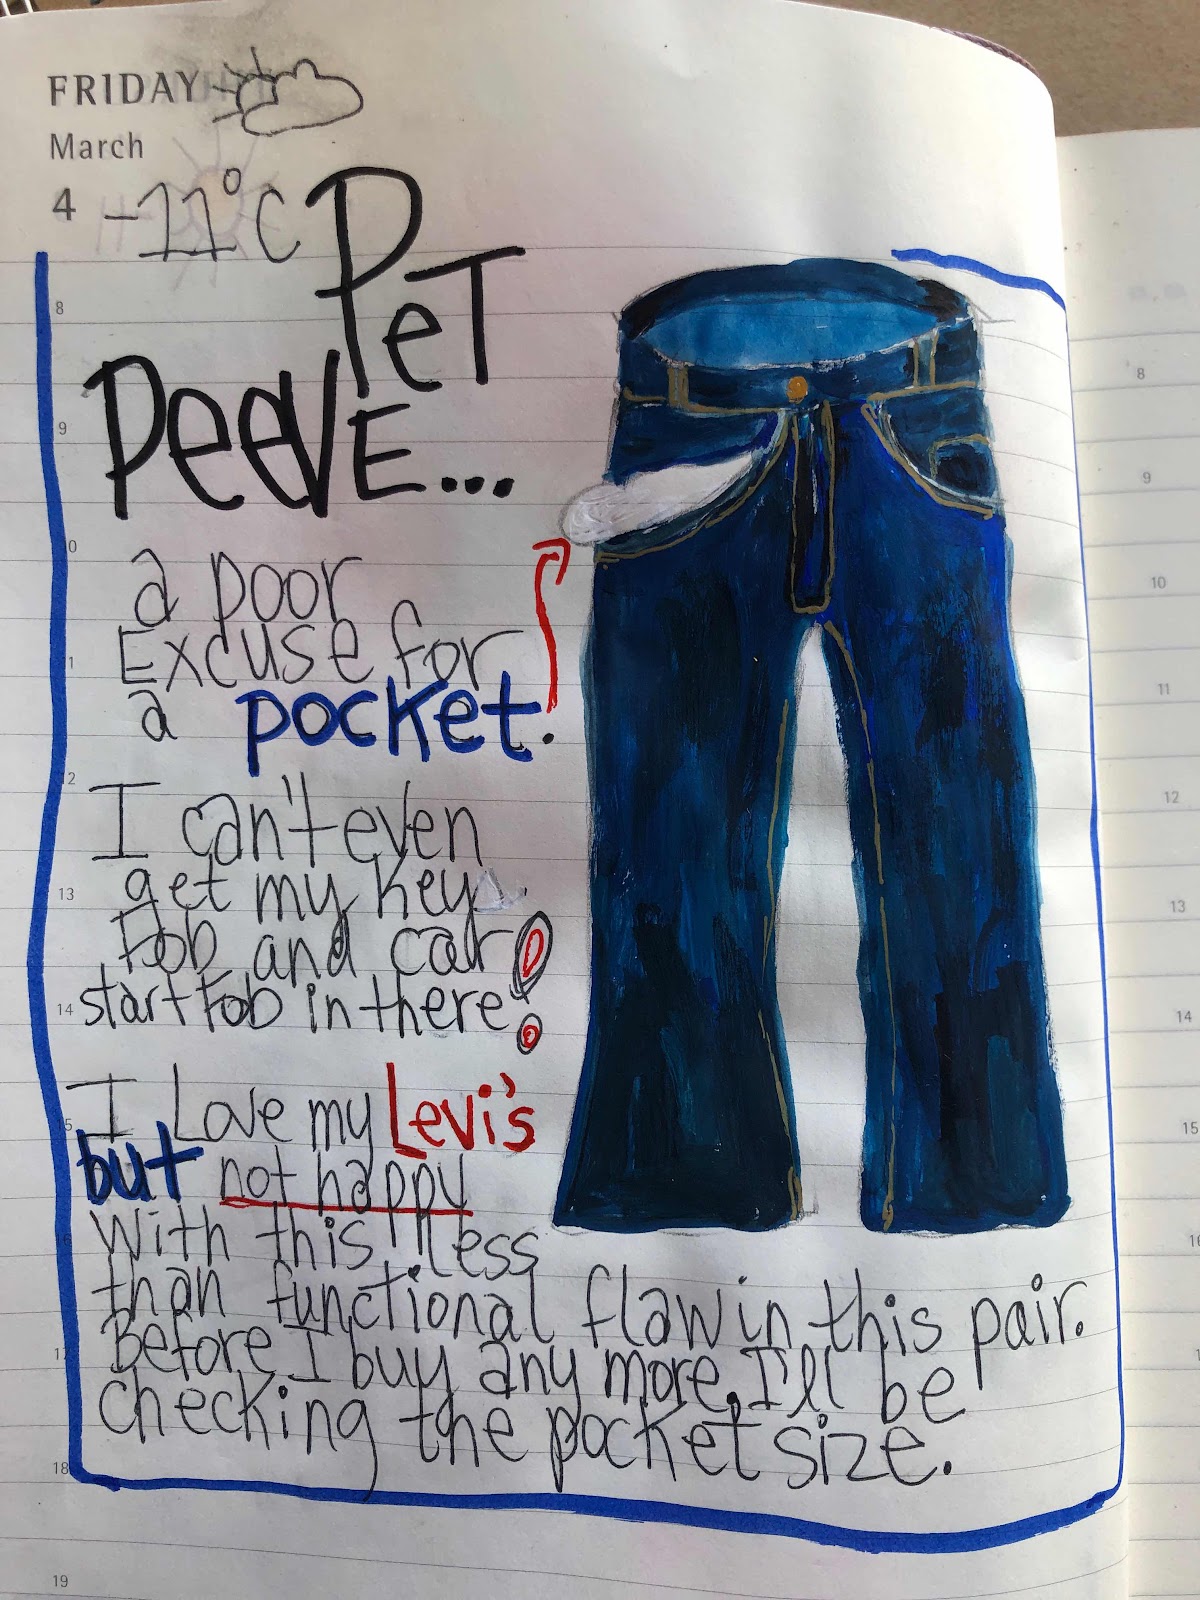 FRIDAY
March
4 -11°C
PeT
PeeVE...
a poor
Excuse for
a pocket.
I can't even
get my key
Fob and car
start Fob in there!
I Love my Levi's
but not happy
with this less
than functional flaw in this pair.
Before I buy any more, I'll be
checking the pocket size.
8
9
10
11
12
13
14
15
16
17
18
19
8
9
10
11
12
13
14
15
16